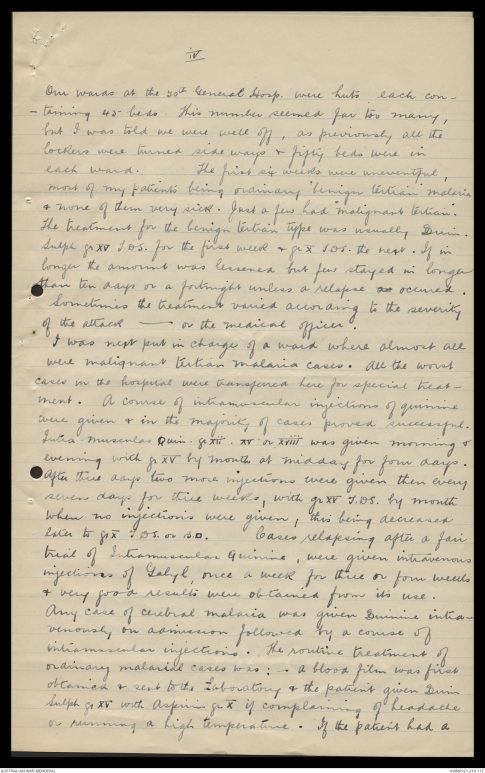 iv
Our wards at the 50th General Hosp. were huts each con-
-taining 45 beds. This number seemed far too many,
but I was told we were well off, as previously all the
lockers were turned side ways & fifty beds were in
each ward. The first six weeks were uneventful,
most of my patients being ordinary "benign tertian" malaria
& none of them very sick. Just a few had "malignant tertian".
The treatment for the benign tertian type was usually Quin.
Sulph gr XV T.D.S. for the first week & gr X T.D.S. the next. If in
longer the amount was lessened but few stayed in longer
than ten days or a fortnight unless a relapse occured.
Sometimes the treatment varied according to the severity
of the attack — or the medical officer.
I was next put in charge of a ward where almost all
were malignant tertian malaria cases. All the worst
cases in the hospital were transferred here for special treat-
ment. A course of intramuscular injections of quinine
were given & in the majority of cases proved successful.
Intra-muscular Quin. gr XII. XV or XVIII was given morning &
evening with gr XV by mouth at midday for four days.
After three days two more injections were given then every
seven days for three weeks, with gr XV T.D.S. by mouth
when no injections were given, this being decreased
later to gr X T.D.S. or B.D. Cases relapsing after a fair
trial of Intramuscular Quinine, were given intravenous
injections of Galyl, once a week for three or four weeks
& very good results were obtained from its use.
Any case of cerebral malaria was given Quinine intra-
venously on admission followed by a course of
intramuscular injections. The routine treatment of
ordinary malarial cases was: - a blood film was first
obtained & sent to the Laboratory & the patient given Quin
Sulph gr XV with Aspirin gr X if complaining of headache
or running a high temperature. If the patient had a
AUSTRALIAN WAR MEMORIAL
AWM2021.219.117